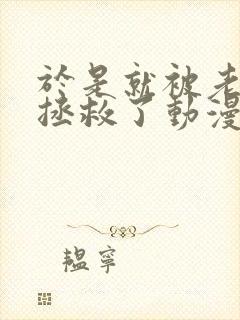 於是就被老
拯救了動漫
韞寧